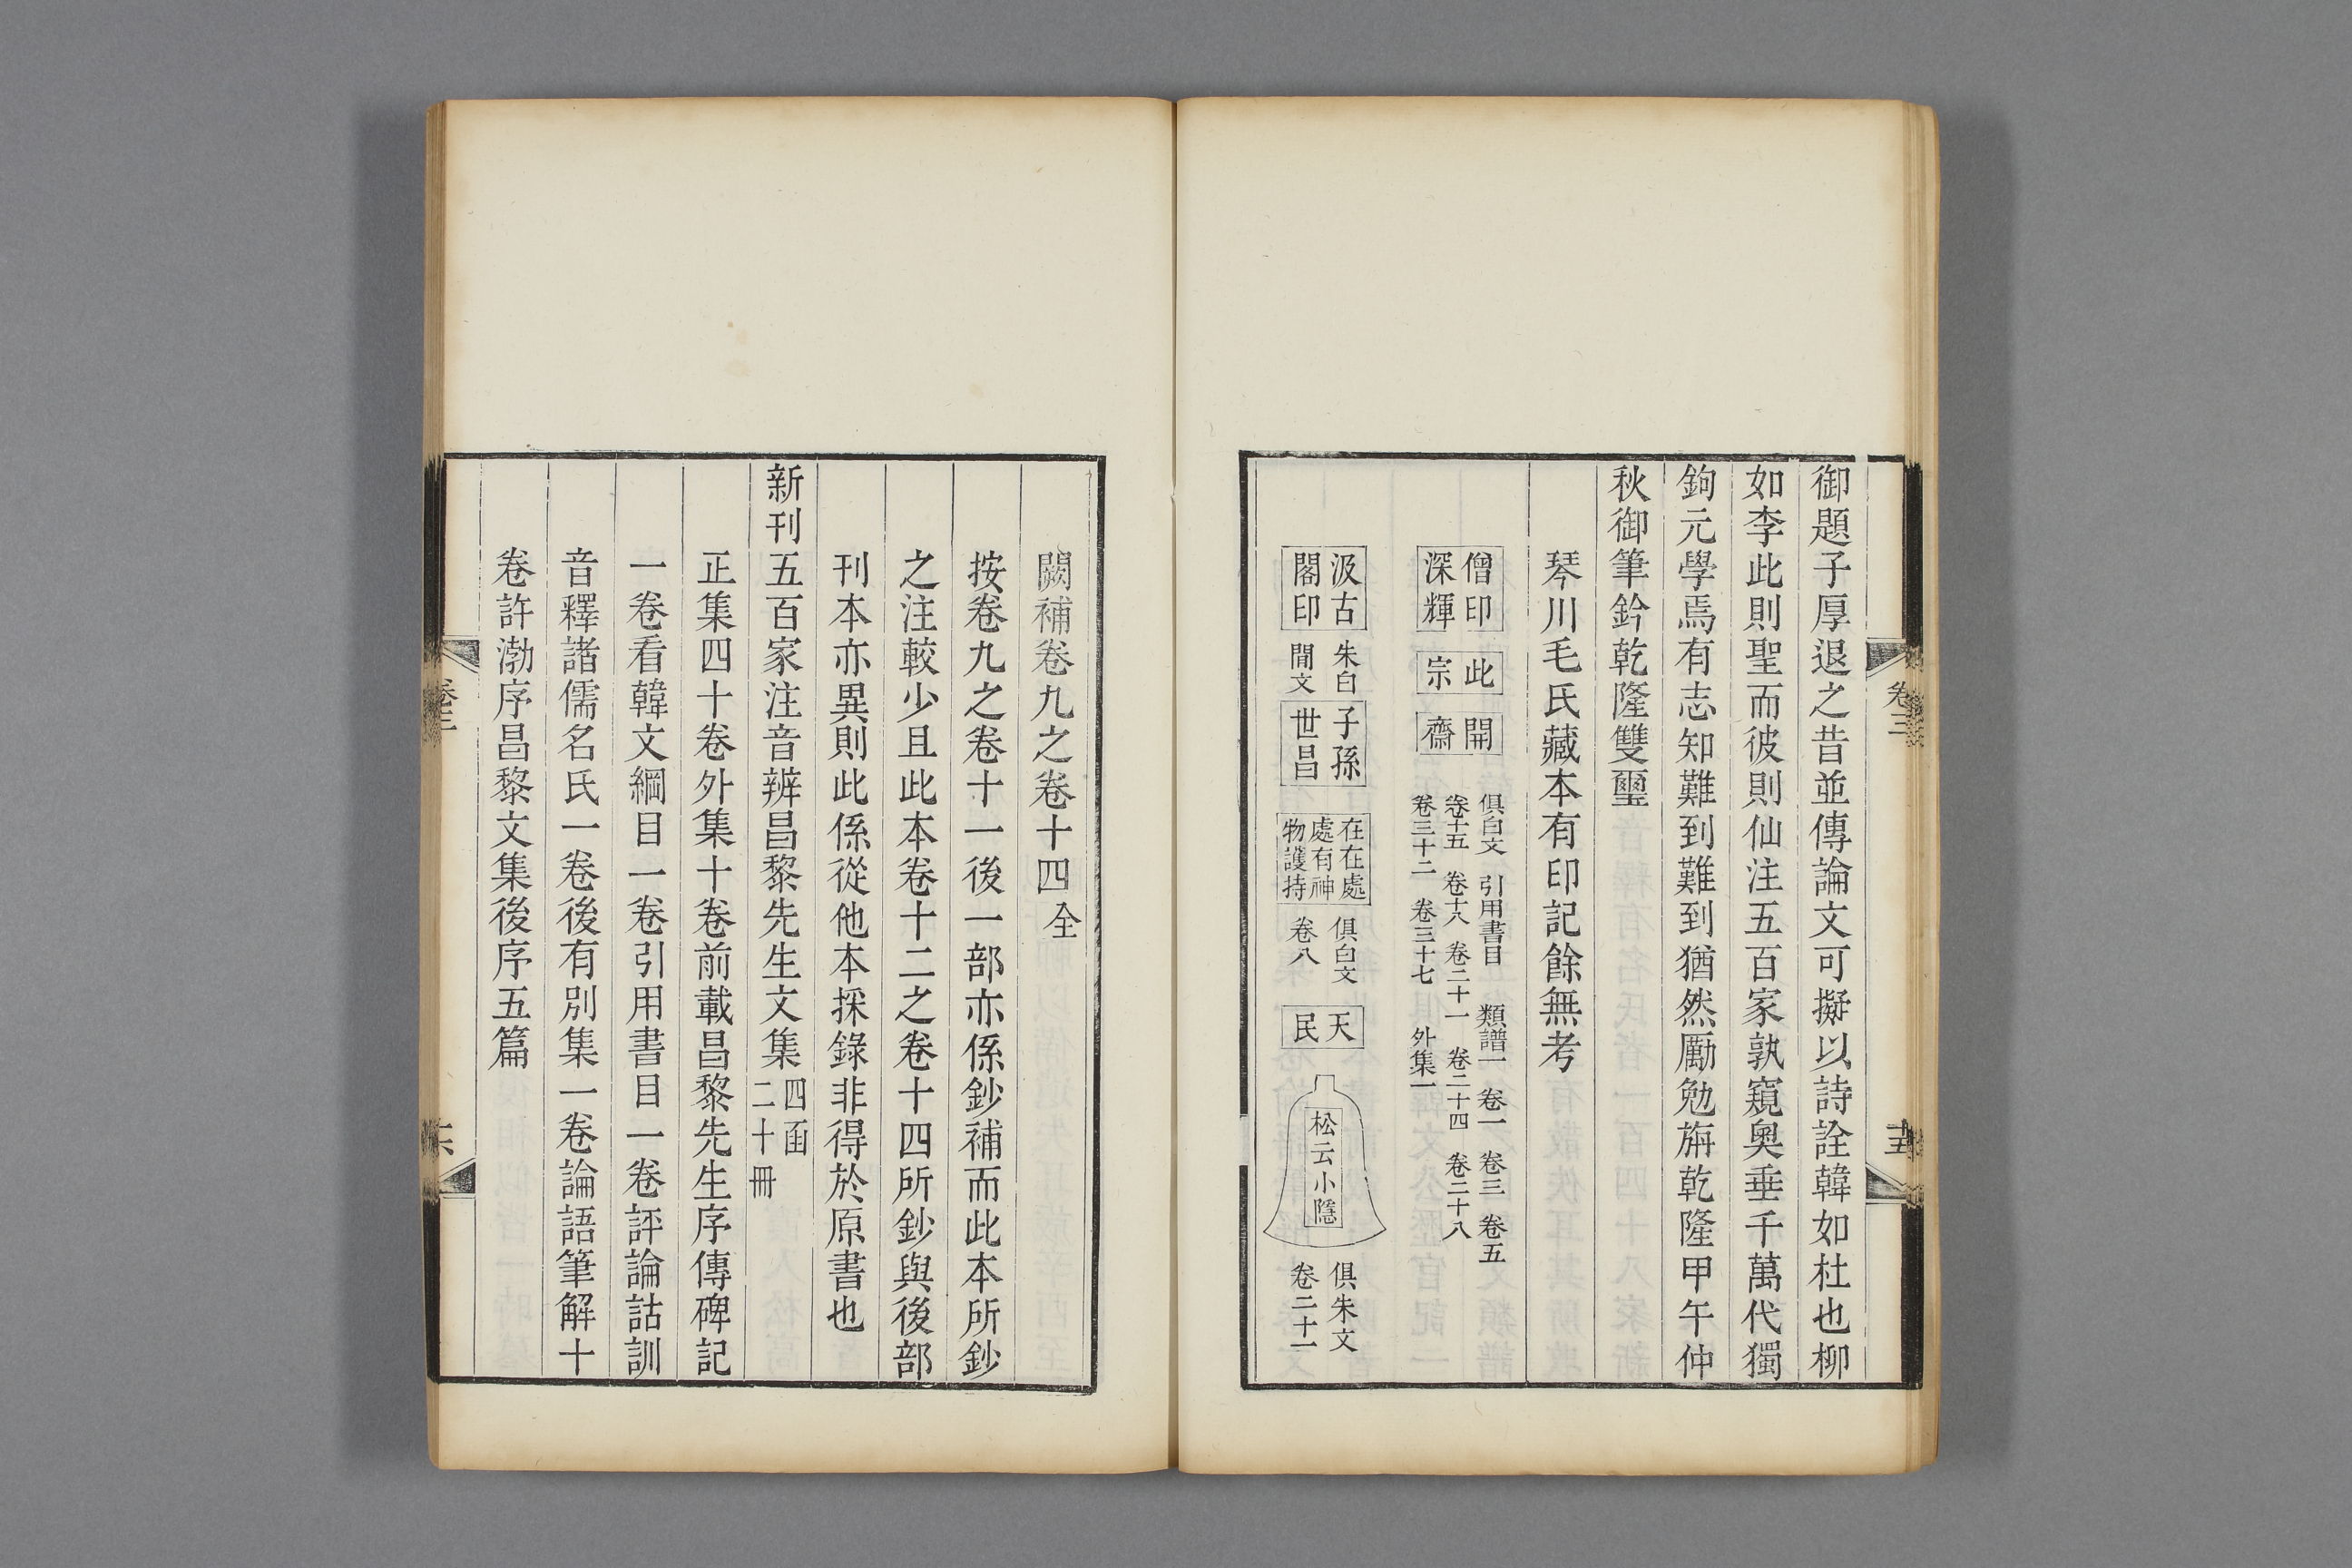 卷三
十五
御題子厚退之昔並傳論文可擬以詩詮韓如杜也柳
如李此則聖而彼則仙注五百家孰窺奧垂千萬代獨
鉤元學焉有志知難到難到猶然勵勉旃乾隆甲午仲
秋御筆鈐乾隆雙璽
琴川毛氏藏本有印記餘無考
僧印
深輝
此
宗
開
齋
俱白文 引用書目 類譜一 卷一 卷三 卷五
卷十五 卷十八 卷二十一 卷二十四 卷二十八
卷三十二 卷三十七 外集一
汲古
閣印
朱白
間文
子孫
世昌
在在處
處有神
物護持
俱白文
卷八
天
民
松云小隱
俱朱文
卷二十一
闕補卷九之卷十四 全
按卷九之卷十一後一部亦係鈔補而此本所鈔
之注較少且此本卷十二之卷十四所鈔與後部
刊本亦異則此係從他本採錄非得於原書也
新刊五百家注音辨昌黎先生文集 四函
二十冊
正集四十卷外集十卷前載昌黎先生序傳碑記
一卷看韓文綱目一卷引用書目一卷評論詁訓
音釋諸儒名氏一卷後有別集一卷論語筆解十
卷許渤序昌黎文集後序五篇
卷三